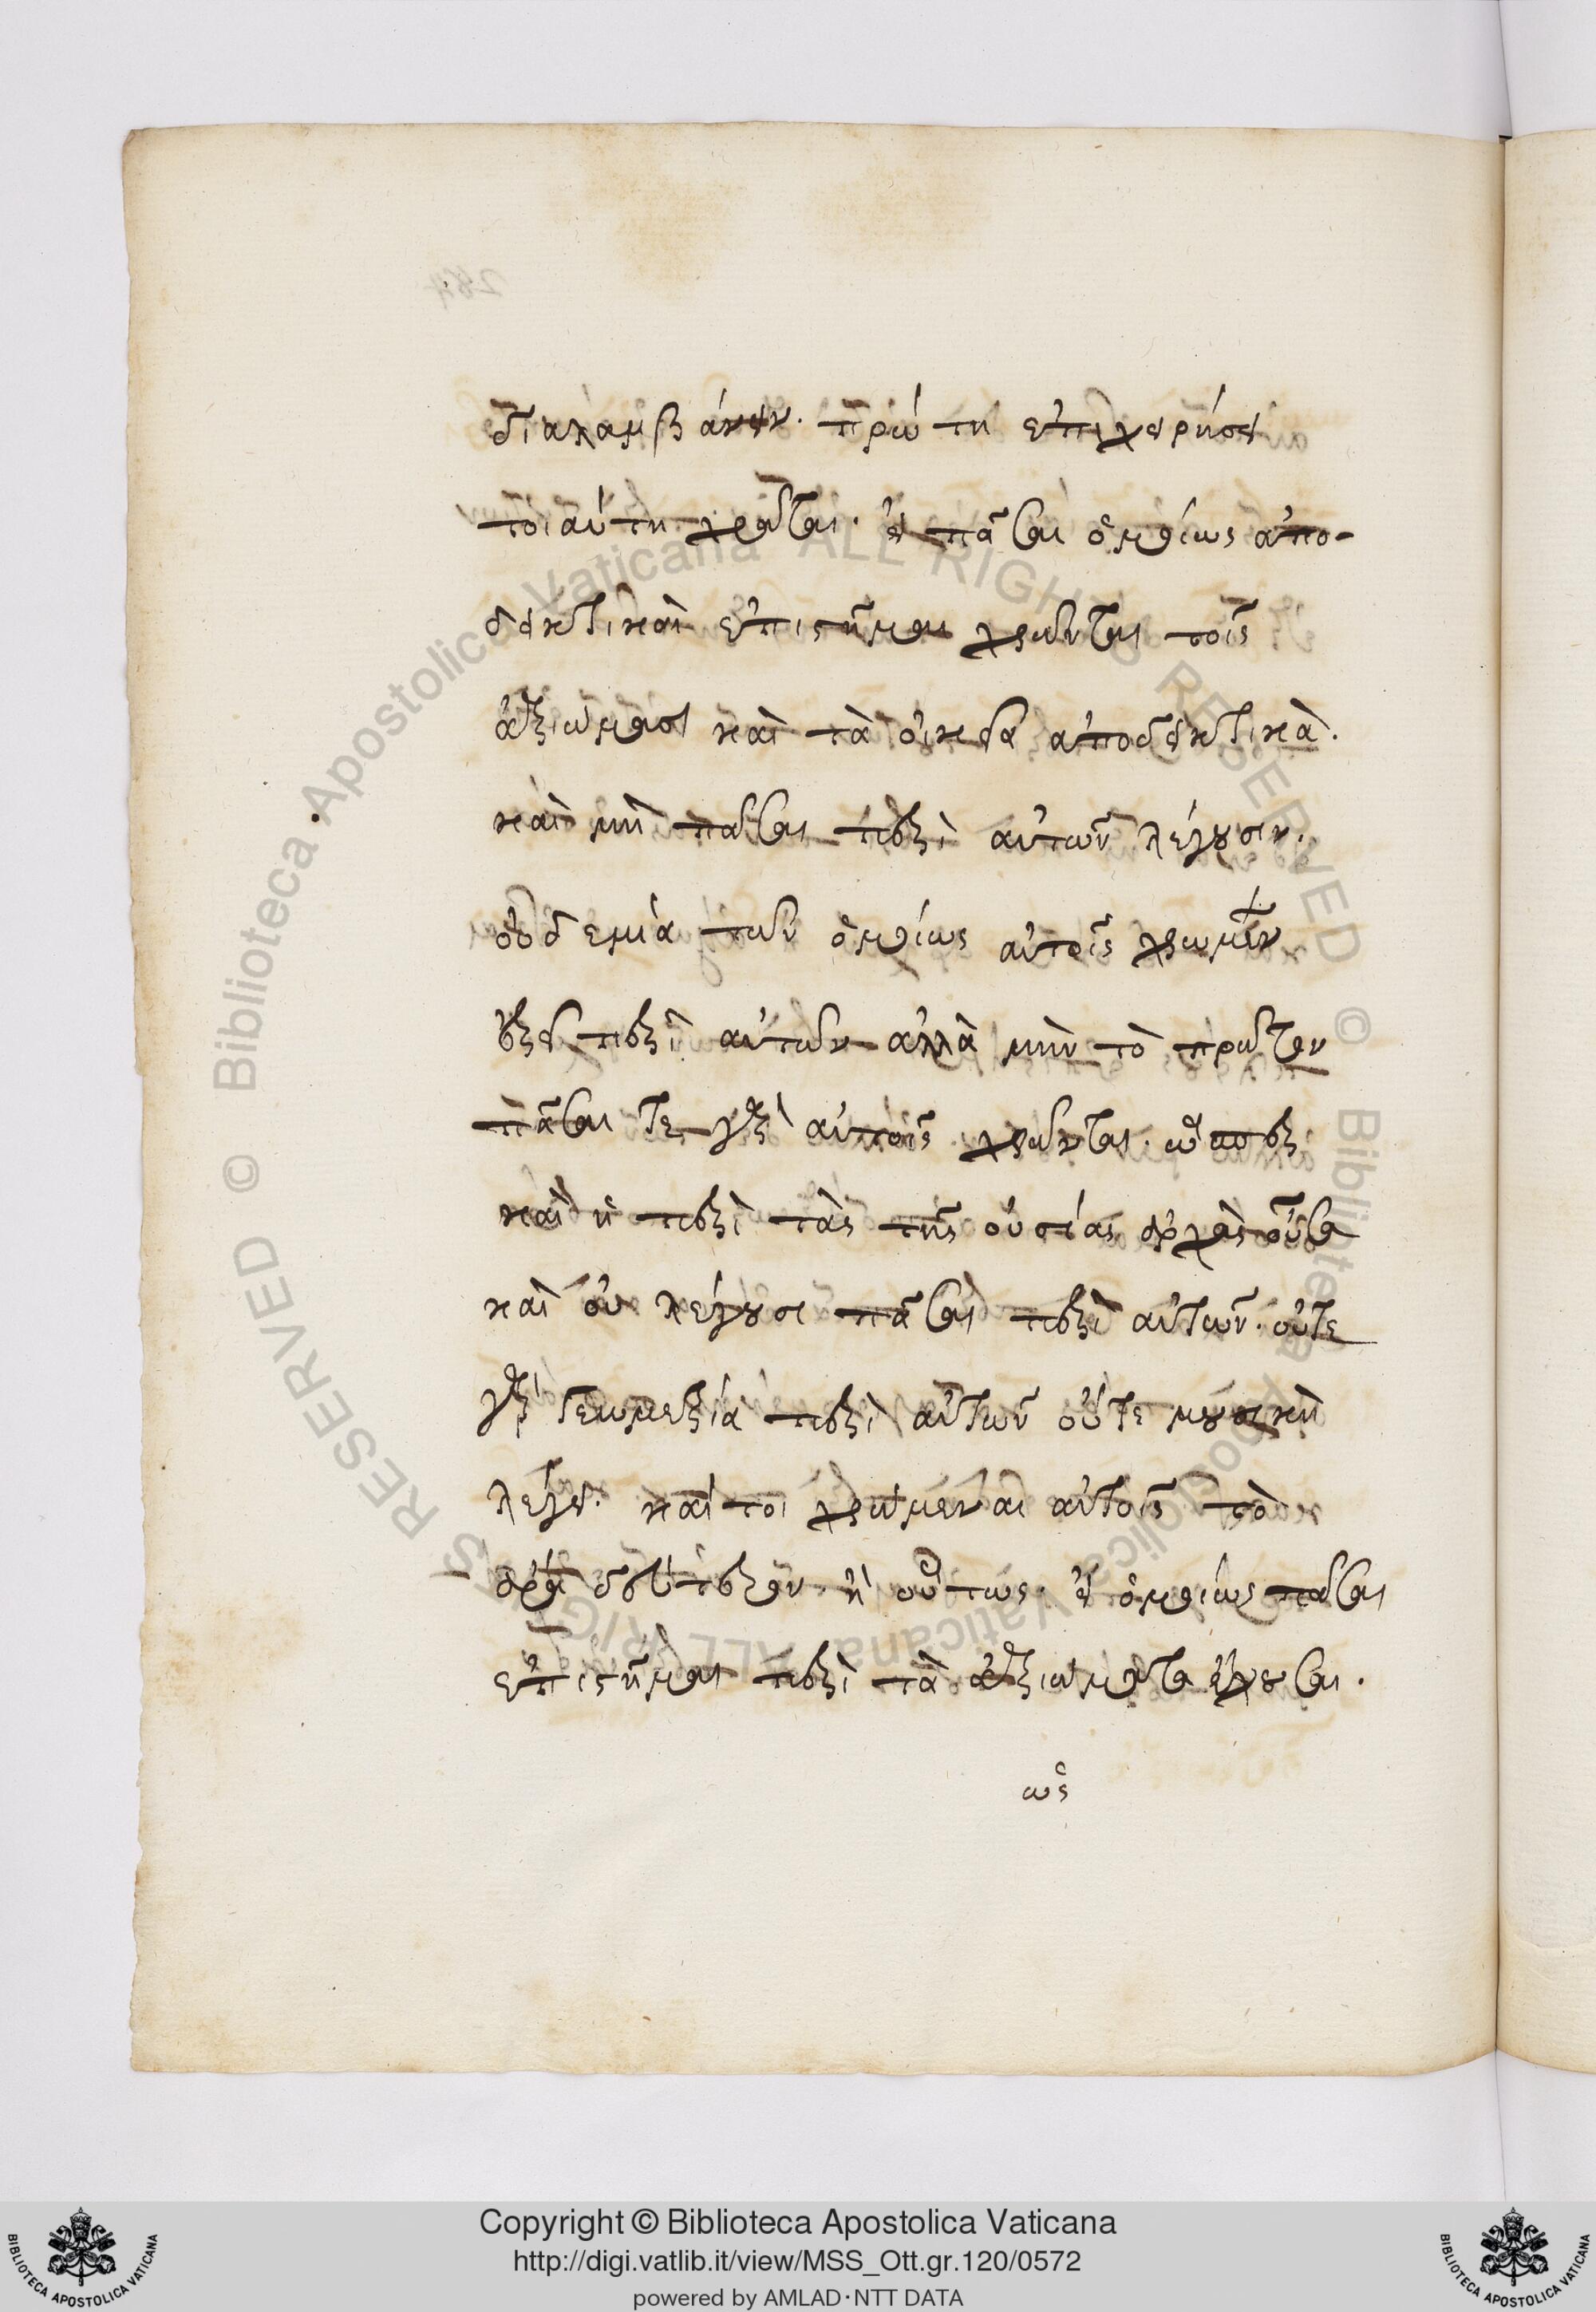 διαλαμβάνειν. πρώτη ἐπιχειρήσει
τοιαύτη χρῆται. εἰ πᾶσαι ὁμοίως ἀπο-
δεικτικαὶ ἐπιστῆμαι χρῶνται τοῖς
ἀξιώμασι καὶ τὰ οἰκεῖα ἀποδεικτικὰ.
καὶ μὴ πᾶσαι περὶ αὐτῶν λέγουσιν.
οὐδεμία τῶν ὁμοίως αὐτοῖς χρωμένων
ἐρεῖ περὶ αὐτῶν ἀλλὰ μὴν τὸ πρῶτον
πᾶσαι τε γὰρ αὐτοῖς χρῶνται. ὥσπερ
καὶ ἡ περὶ τὰς τῆς οὐσίας ἀρχὰς οὖσα
καὶ οὐ λέγουσι πᾶσαι περὶ αὐτῶν. οὔτε
γὰρ γεωμετρία περὶ αὐτῶν οὔτε μουσικὴ
λέγει. καίτοι χρώμεναι αὐτοῖς τὸ
ἄρα δεύτερον. ἢ οὕτως. εἰ ὁμοίως πᾶσαι
ἐπιστῆμαι περὶ τὰ ἀξιώματα ἔχουσαι.
ὡς
Copyright © Biblioteca Apostolica Vaticana
http://digi.vatlib.it/view/MSS_Ott.gr.120/0572
powered by AMLAD·NTT DATA